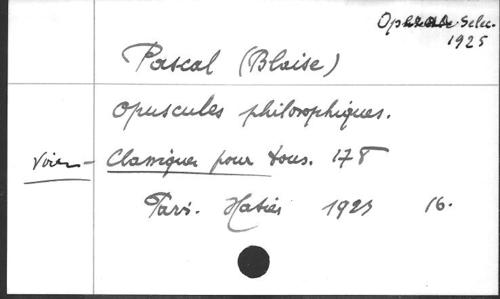 Selec.
1925
Pascal (Blaise)
Opuscules philosophiques.
Voir - Classiques pour tous. 178
Paris. Hatier 1923 16.